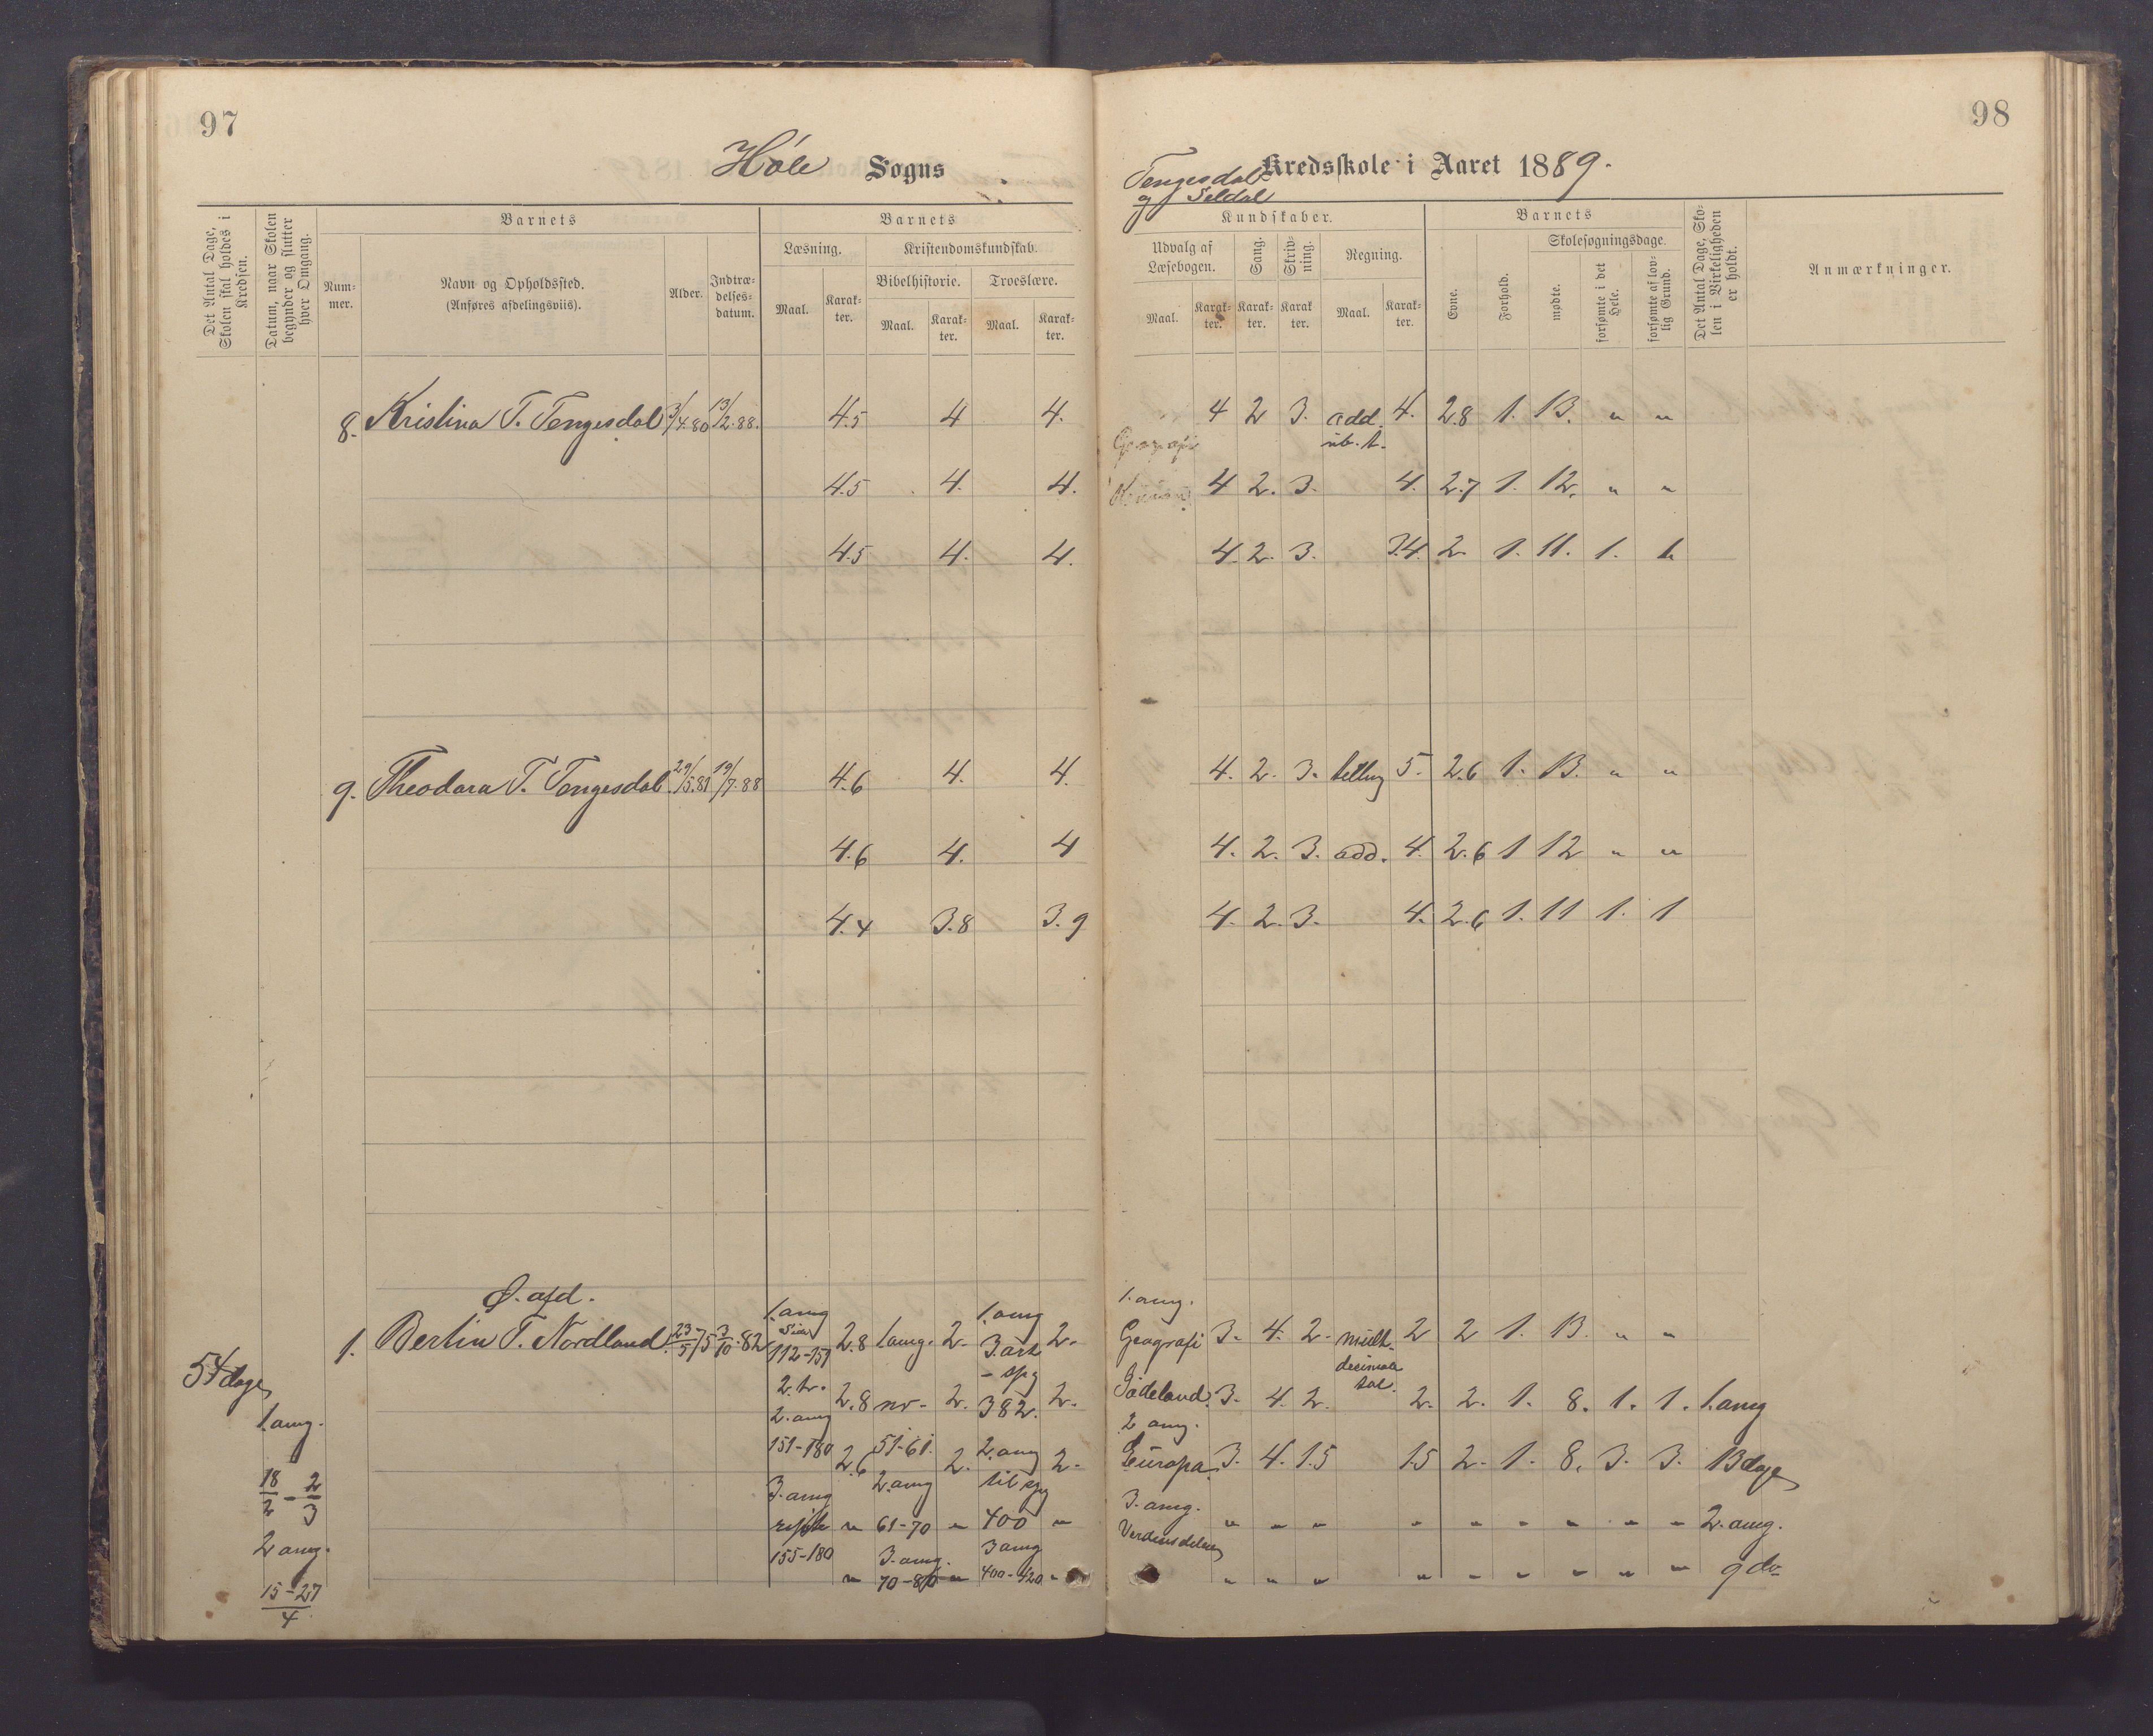 97
98
Höle Sogns
Tengesdal Kredsskole i Aaret 1889.
og Seldal
Det Antal Dage, Skolen skal holdes i Kredsen.
Datum, naar Skolen begynder og slutter hver Omgang.
Barnets
Num-
mer.
Navn og Opholdssted.
(Anføres afdelingsviis).
Alder.
Indtræ-
delses-
datum.
Barnets
Læsning.
Maal.
Karak-
ter.
Kristendomskundskab.
Bibelhistorie.
Maal.
Karak-
ter.
Troeslære.
Maal.
Karak-
ter.
Kundskaber.
Udvalg af
Læsebogen.
Maal.
Karak-
ter.
Sang.
Karak-
ter.
Skriv-
ning.
Karak
ter.
Regning.
Maal.
Karak-
ter.
Barnets
Evne.
Forhold.
Skolesøgningsdage.
mødte.
forsømte i det Hele.
forsømte af lov-
lig Grund.
Det Antal Dage, Sko-
len i Virkeligheden
er holdt.
Anmærkninger.
8. Kristina T. Tengesdal 3/4.80 13/2.88. 4.5 4 4. 4 2 3. add. 4. 2.8 1. 13. " "
Geografi
4.5 4. 4. 4 2. 3. 4. 2.7 1. 12. " "
4.5 4. 4. 4 2. 3. 3.4. 2. 1. 11. 1. 1.
9. Theodora T. Tengesdal 29/5.81 19/7.88 4.6 4. 4. 4. 2. 3. 5. 2.6 1. 13. " "
4.6 4. 4 4. 2. 3. add. 4. 2.6 1 12 " "
4.4 3.8 3.9 4. 2. 3. 4. 2.6 1. 11 1. 1
Ø. afd.
1. Bertin T. Nordland. 23/5 75 3/10.82
54 dage
1. omg.
18/2 - 2/3
2 omg.
15-27/4
1. omg
112-151
2. omg
151-180
3. omg
155-180
2.8
2.8
2.6
"
"
1 omg.
51-61.
2. omg
61-70
3. omg.
70-80
2.
2.
2.
"
"
1. omg
382.
2. omg
til spg
400
3 omg
400-420
2.
2.
2.
"
"
1. omg.
Geografi 3. 4. 2. mult. 2 2 1. 13. " "
decimal
tal.
3. 4. 2. 2. 2. 1. 8. 1. 1. 1. omg
2 omg.
Europa. 3. 4. 1.5 1.5 2. 1. 8. 3. 3. 13 dage
3. omg.
" " " " " " " " " 2. omg.
Verdensdelene
" " " " " " " " " 9 do